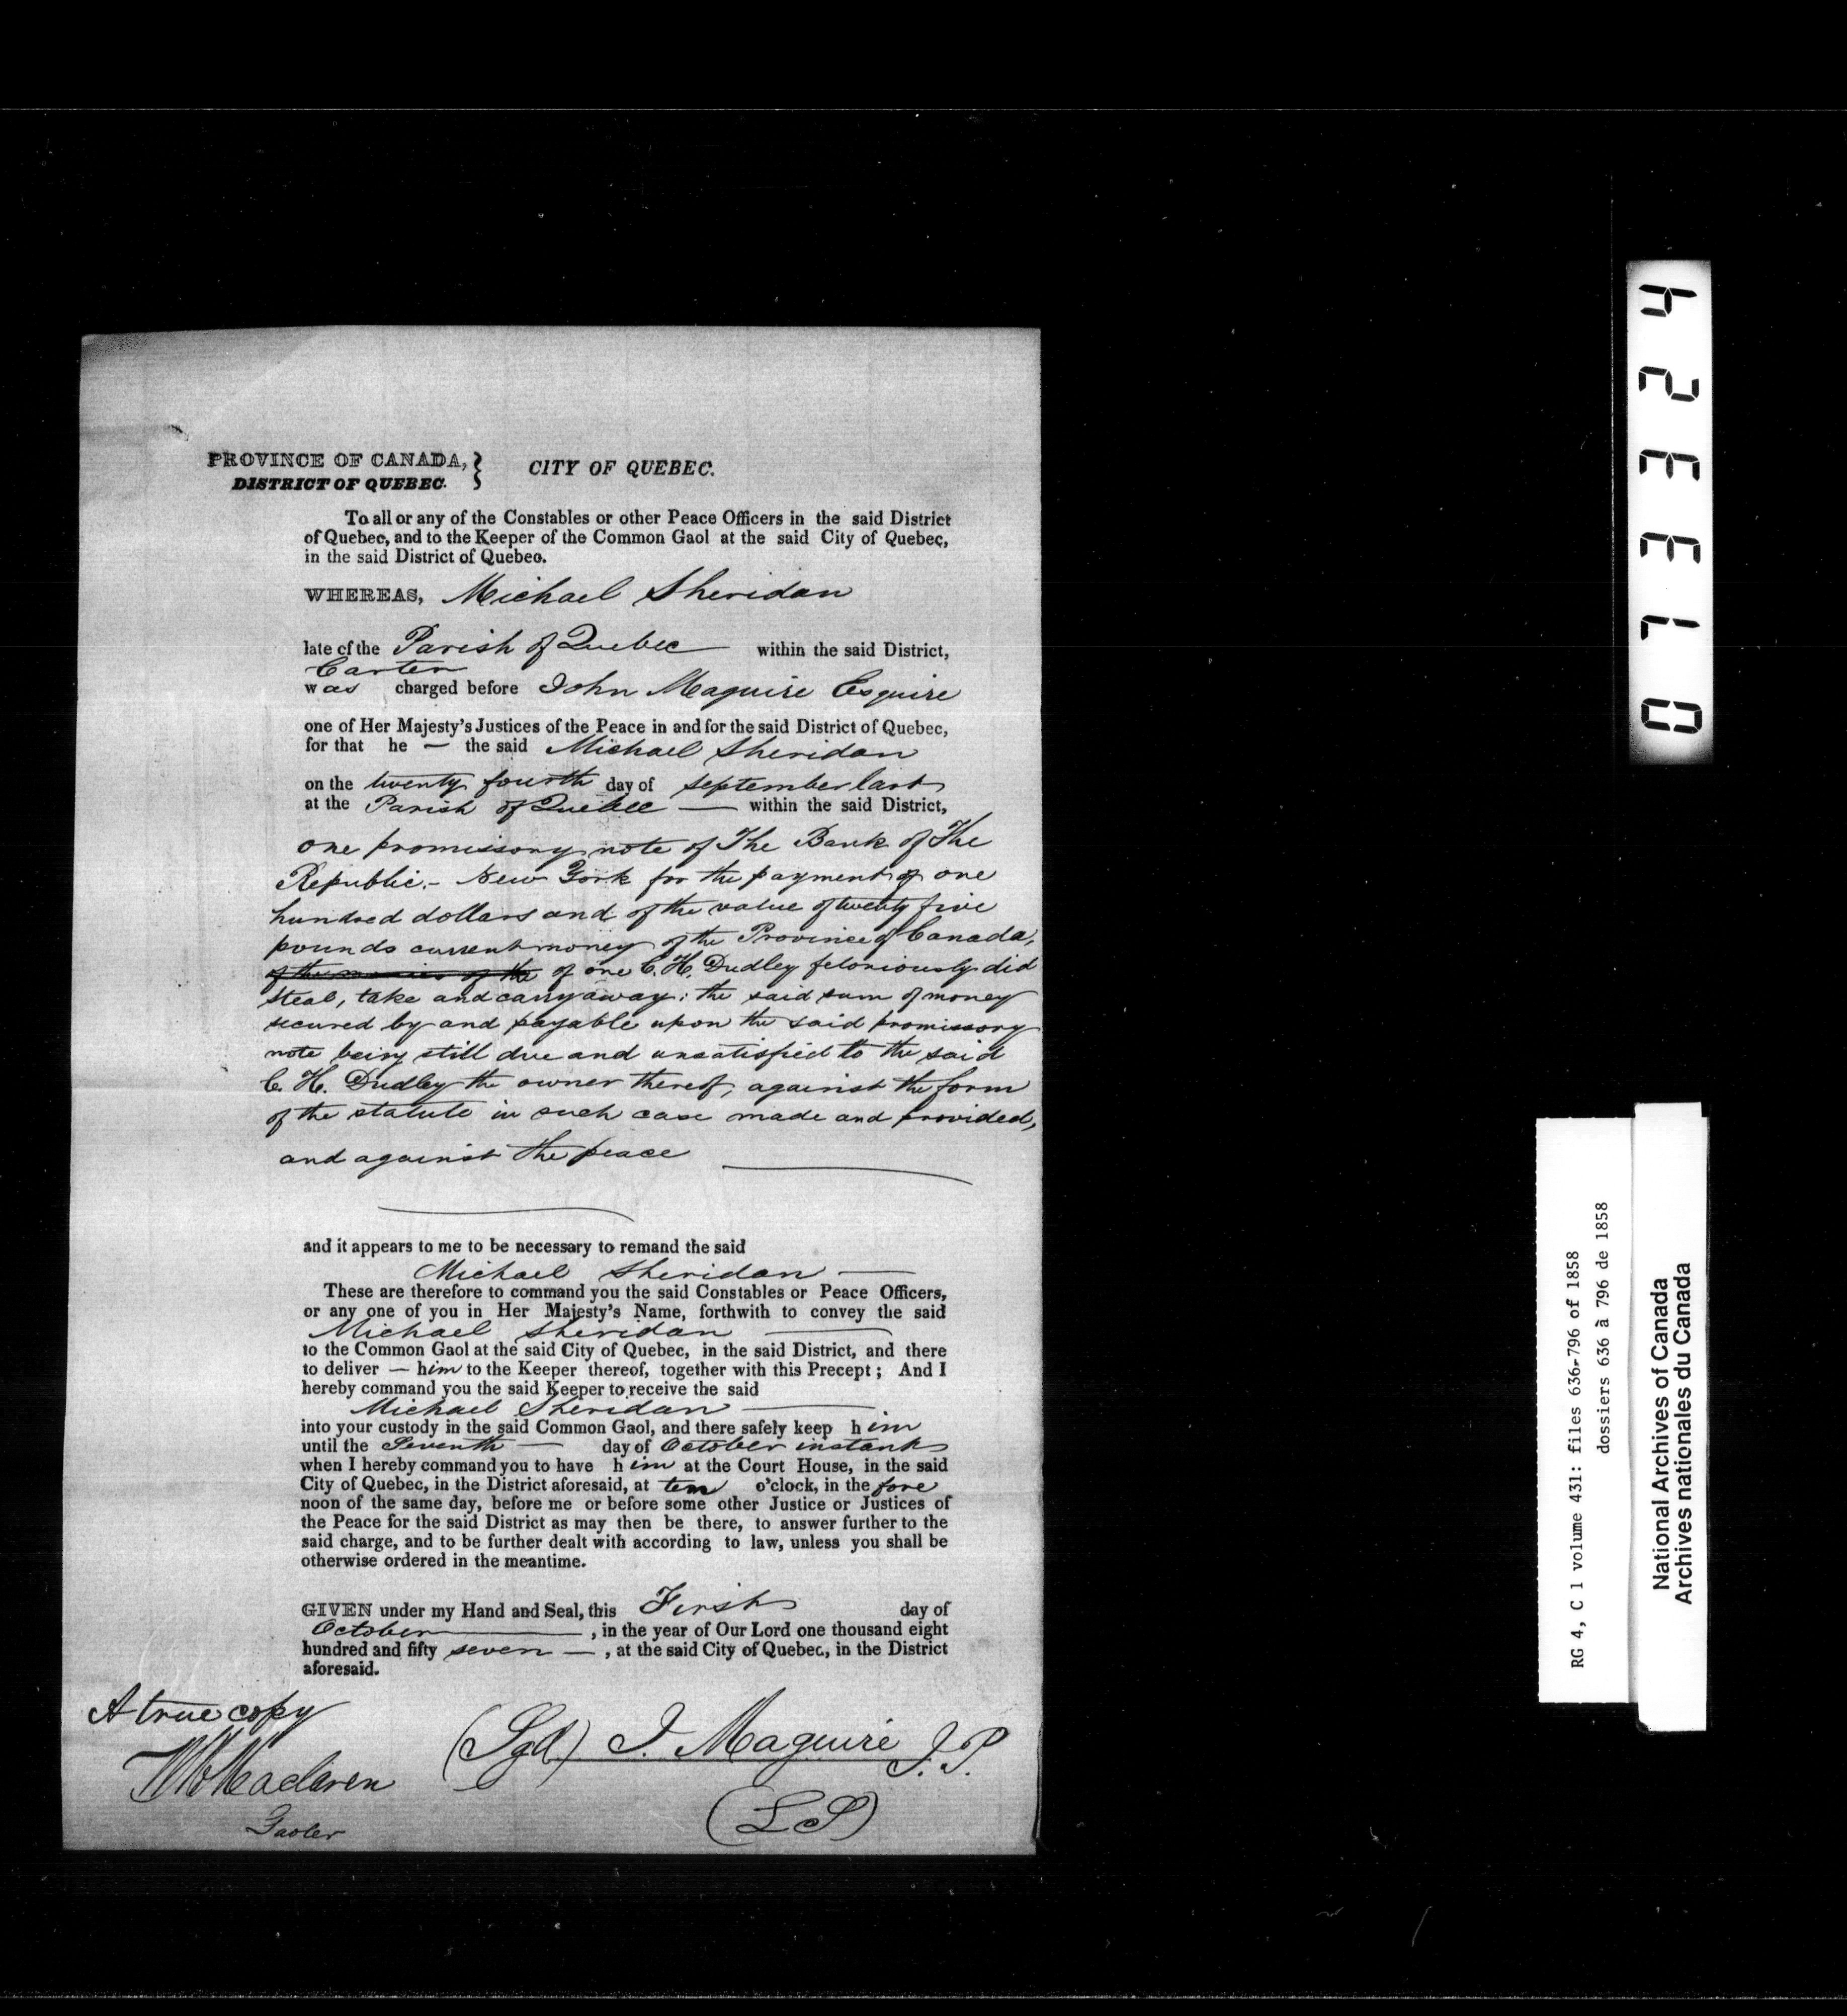 PROVINCE OF CANADA,
DISTRICT OF QUEBEC.
CITY OF QUEBEC.
To all or any of the Constables or other Peace Officers in the said District
of Quebec, and to the Keeper of the Common Gaol at the said City of Quebec,
in the said District of Quebec.
WHEREAS, Michael Sheridan
late of the Parish of Quebec within the said District,
Carter
was charged before John Maguire Esquire
one of Her Majesty's Justices of the Peace in and for the said District of Quebec,
for that he — the said Michael Sheridan
on the twenty fourth day of September last
at the Parish of Quebec — within the said District,
one promissory note of The Bank of The
Republic.- New York for the payment of one
hundred dollars and of the value of twenty five
pounds current money of the Province of Canada,
of the monies of the of one C. H. Dudley feloniously did
steal, take and carry away: the said sum of money
secured by and payable upon the said promissory
note being still due and unsatisfied to the said
C. H. Dudley the owner thereof, against the form
of the statute in such case made and provided,
and against the peace
and it appears to me to be necessary to remand the said
Michael Sheridan —
These are therefore to command you the said Constables or Peace Officers,
or any one of you in Her Majesty's Name, forthwith to convey the said
Michael Sheridan —
to the Common Gaol at the said City of Quebec, in the said District, and there
to deliver — him to the Keeper thereof, together with this Precept; And I
hereby command you the said Keeper to receive the said
Michael Sheridan —
into your custody in the said Common Gaol, and there safely keep him
until the Seventh — day of October instant
when I hereby command you to have him at the Court House, in the said
City of Quebec, in the District aforesaid, at ten o'clock, in the fore
noon of the same day, before me or before some other Justice or Justices of
the Peace for the said District as may then be there, to answer further to the
said charge, and to be further dealt with according to law, unless you shall be
otherwise ordered in the meantime.
GIVEN under my Hand and Seal, this First day of
October —, in the year of Our Lord one thousand eight
hundred and fifty seven —, at the said City of Quebec, in the District
aforesaid.
A true copy
(Sgd) J. Maguire J.P.
Maclaren
(L S)
Gaoler
01334
RG 4, C 1 volume 431: files 636-796 of 1858
dossiers 636 à 796 de 1858
National Archives of Canada
Archives nationales du Canada